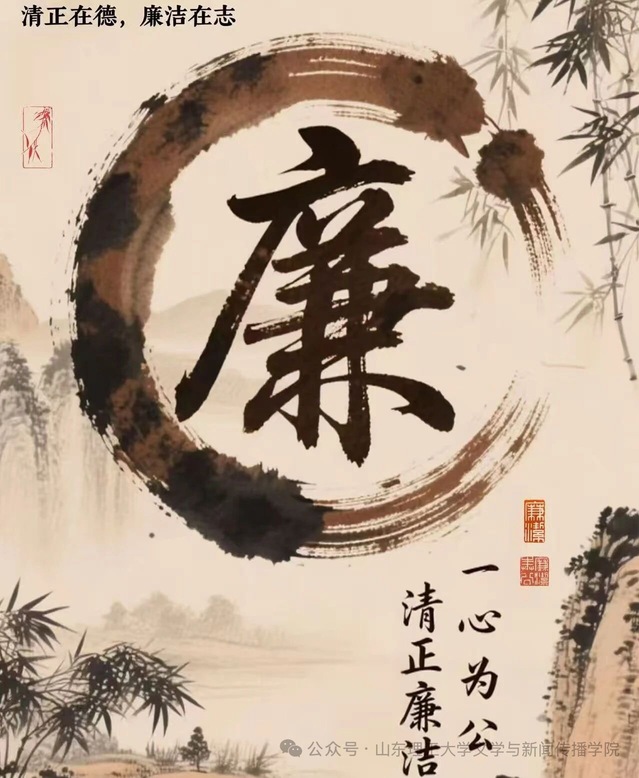 清正在德，廉洁在志
廉
廉潔
一心为公
清正廉洁
公众号 · 山东理工大学文学与新闻传播学院